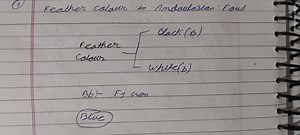 Feather Colour in Andalusian Fowl
Black (B)
Feather
Colour
White (b)
Bb - F1 Gen
Blue